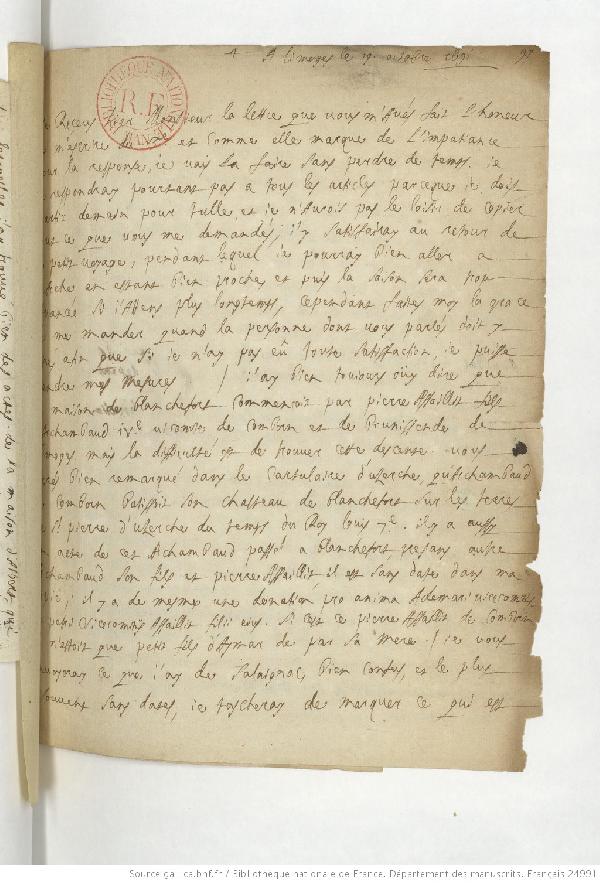 A Limoges le 19 octobre
97
BIBLIOTHEQUE NATIONALE
R.F.
MANUSCRITS
Receus hier Monsieur la lettre que vous m'avés fait l'honeur
m'escrire et comme elle marque de l'impatiance
la response, ie vais la faire sans perdre de temps. ie
respondray pourtant pas a tous les articles parceque ie dois
demain pour tulle, et ie n'aurois pas le loisir de copier
ce que vous me demandes, i'y satisfairay au retour de
petit voyage, pendant lequel ie pourray bien aller a
en estant bien proche, et puis la saison sera trop
si i'attens plus longtemps, cependant faites moy la grace
me mander quand la personne dont vous parlés doit
afin que si ie n'ay pas eû toute satisfaction, ie puisse
mes mesures / i'ay bien toujours oüy dire que
maison de Blanchefort commencoit par pierre Assaillit fils
Archambaud vicomte de Comborn et de Brunissende de
moges mais la difficulté est de trouver cette descente vous
bien remarqué dans le Cartulaire d'userche, qu'Archambaud
Comborn batissoit son chasteau de Blanchefort sur les terres
St pierre d'userche du temps du Roy louis 7e. il y a aussy
acte de cet Archambaud passé a Blanchefort, presans autre
chambaud son fils et pierre Assaillit, il est sans date dans ma
; il y a de mesme une donation pro anima Ademari vicecomitis
vicecomitis Assaillit filii eius. si c'est ce pierre Assaillit de Comborn
n'estoit que petit fils d'Aymar de par sa mere / ie vous
ce que i'ay de Salaignac, bien confus, et le plus
souvent sans dates, ie tascheray de marquer ce qui est
Source gallica.bnf.fr / Bibliothèque nationale de France. Département des manuscrits. Français 24991